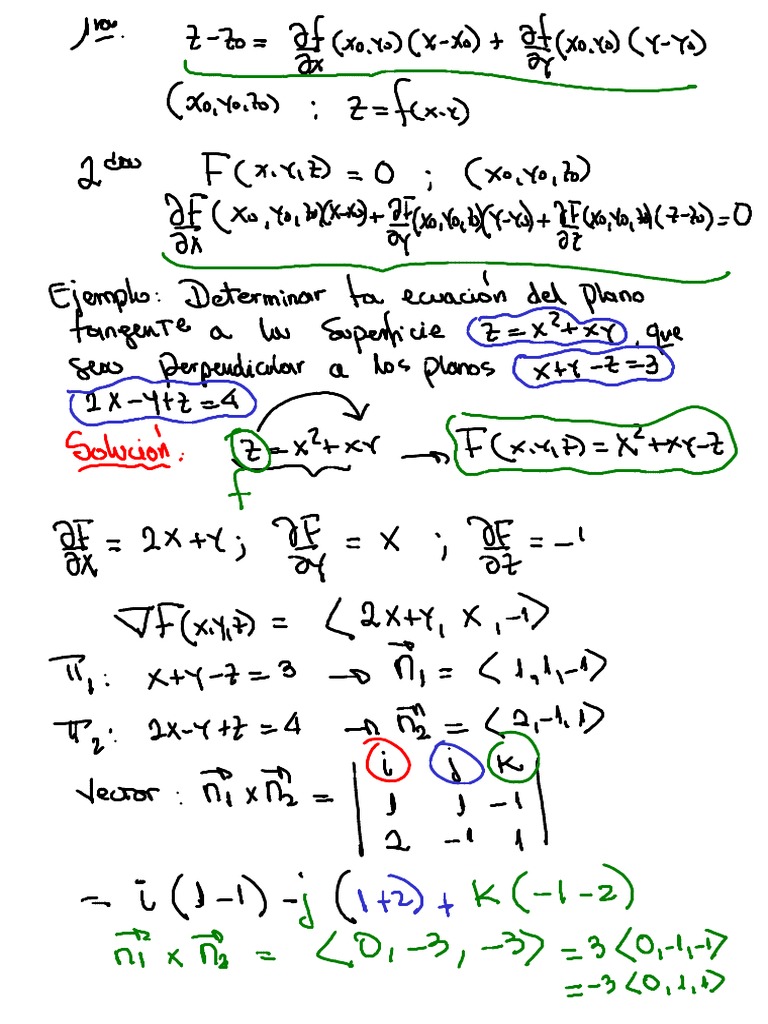 1ra. z-z₀ = ∂f/∂x (x₀,y₀)(x-x₀) + ∂f/∂y (x₀,y₀)(y-y₀)
(x₀,y₀,z₀) ; z = f(x,y)
2da F(x,y,z) = 0 ; (x₀,y₀,z₀)
∂F/∂x (x₀,y₀,z₀)(x-x₀) + ∂F/∂y (x₀,y₀,z₀)(y-y₀) + ∂F/∂z (x₀,y₀,z₀)(z-z₀) = 0
Ejemplo: Determinar la ecuación del plano
tangente a la superficie z = x² + xy, que
sea perpendicular a los planos x+y-z=3
2x-y+z=4
Solución: z = x² + xy → F(x,y,z) = x² + xy - z
f
∂F/∂x = 2x+y ; ∂F/∂y = x ; ∂F/∂z = -1
∇F(x,y,z) = ⟨2x+y, x, -1⟩
π₁: x+y-z=3 → n₁ = ⟨1,1,-1⟩
π₂: 2x-y+z=4 → n₂ = ⟨2,-1,1⟩
Vector: n₁ x n₂ = | i j k |
| 1 1 -1 |
| 2 -1 1 |
= i(1-1) - j(1+2) + k(-1-2)
n₁ x n₂ = ⟨0,-3,-3⟩ = 3⟨0,-1,-1⟩
= -3⟨0,1,1⟩